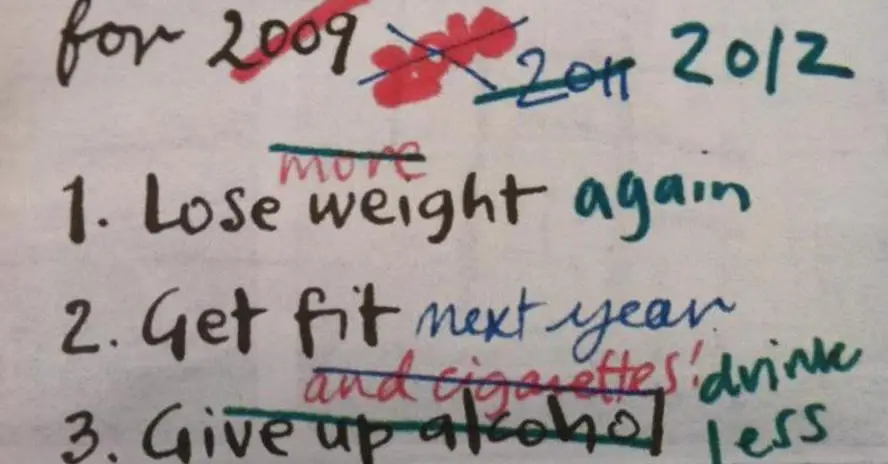 for 2009 2011 2012
more
1. Lose weight again
2. Get fit next year
and cigarettes! drink
3. Give up alcohol less